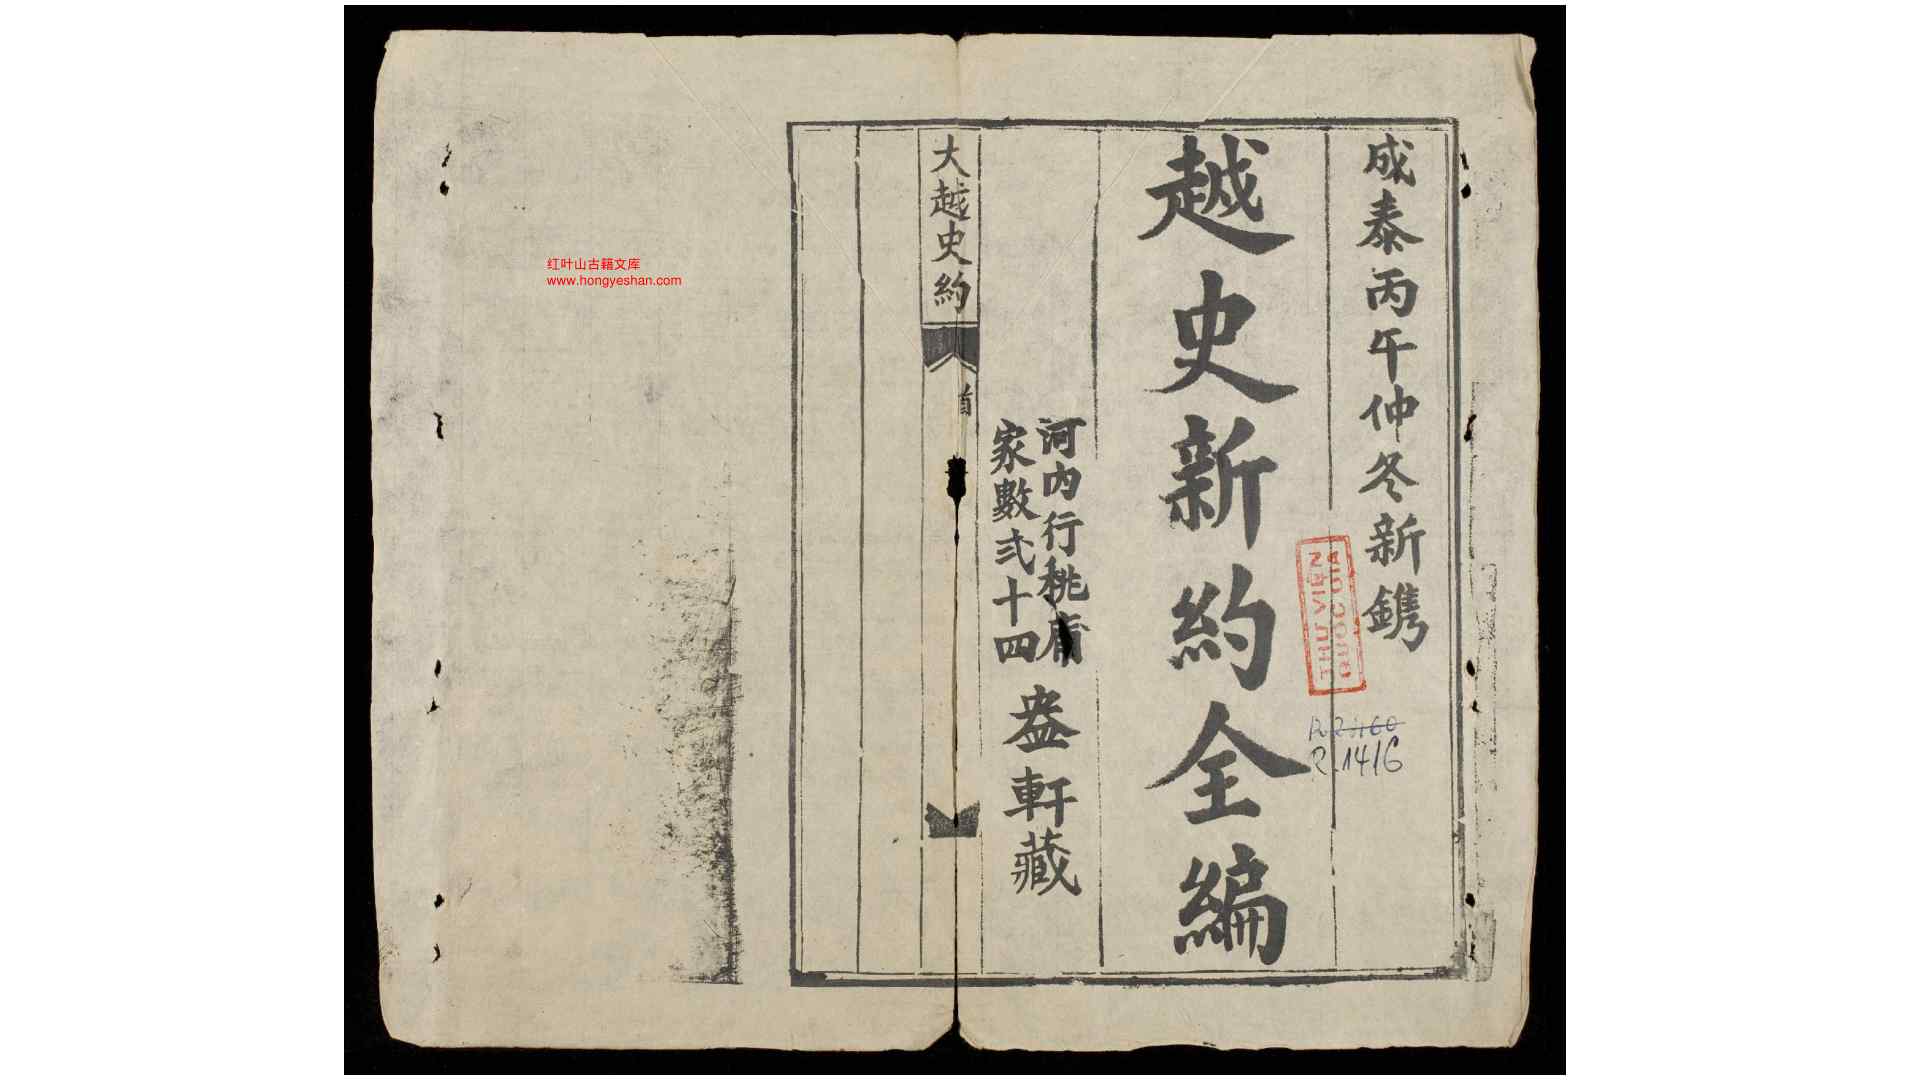 成泰丙午仲冬新鐫
越史新約全編
河內行桃庯
家數弍十四
盎軒藏
大越史約
首
THƯ VIỆN
QUỐC GIA
R.1416
红叶山古籍文库
www.hongyeshan.com